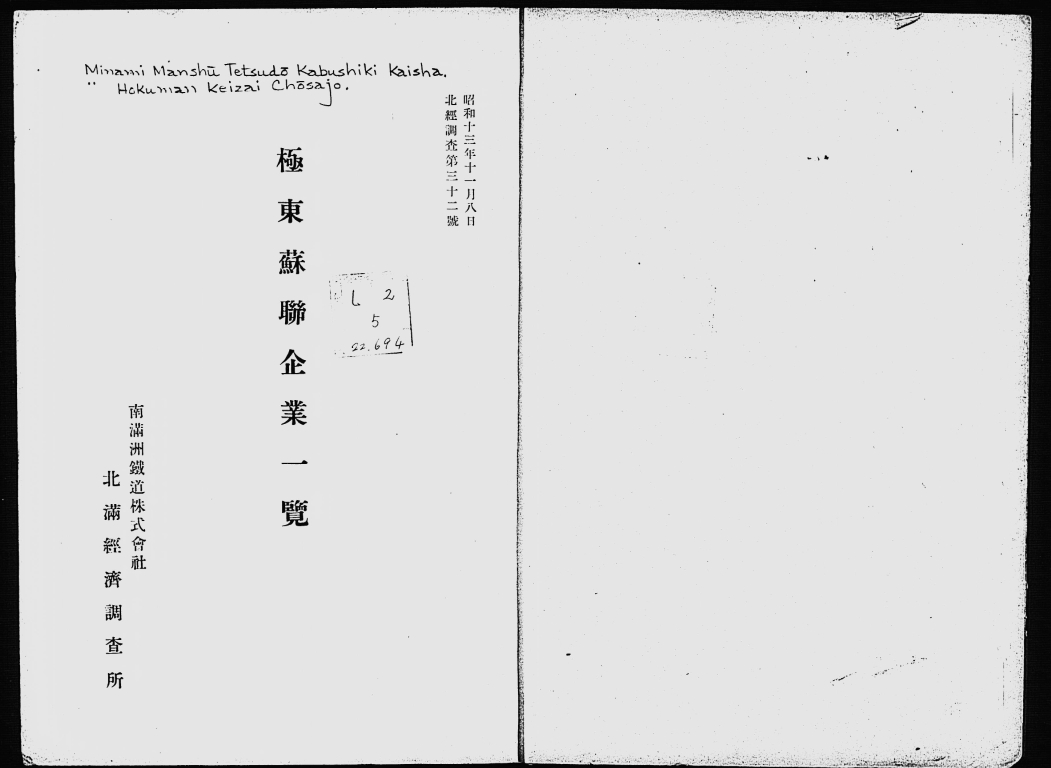 Minami Manshū Tetsudō Kabushiki Kaisha.
" Hokuman Keizai Chōsajo.
昭和十三年十一月八日
北經調査第三十二號
極東蘇聯企業一覽
L 2
5
22.694
南滿洲鐵道株式會社
北滿經濟調查所